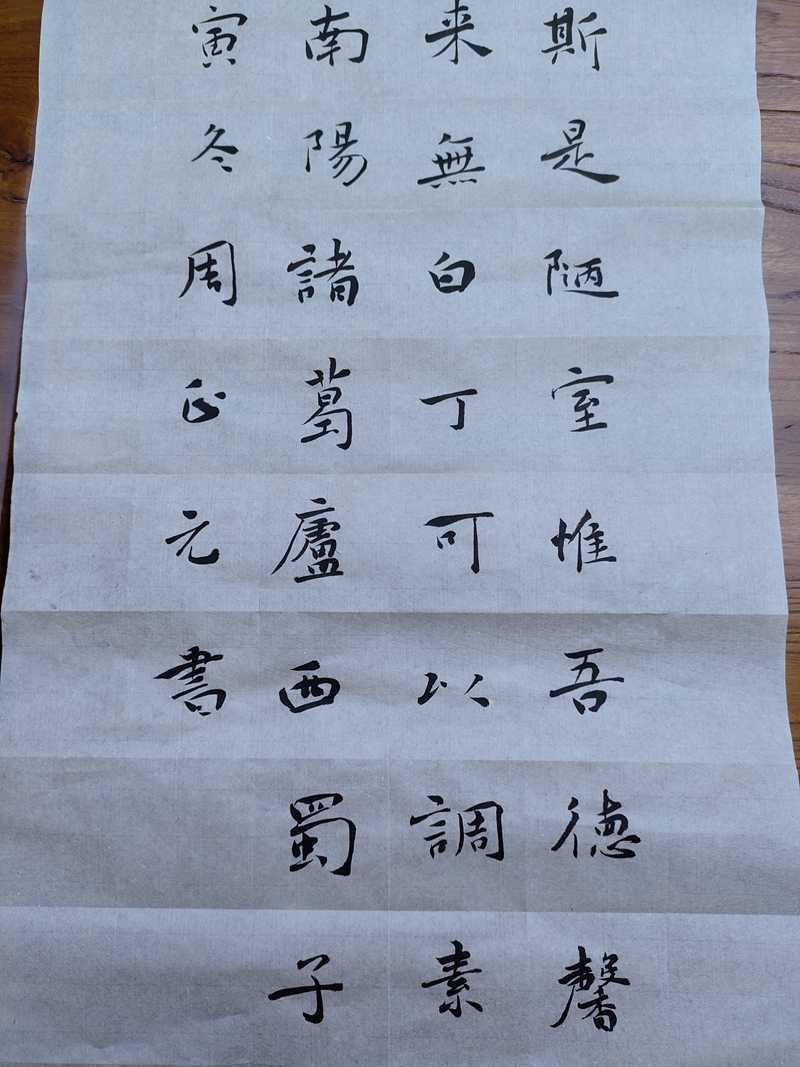 斯是陋室惟吾德馨
来無白丁可以調素
南陽諸葛廬西蜀子
寅冬周正元書